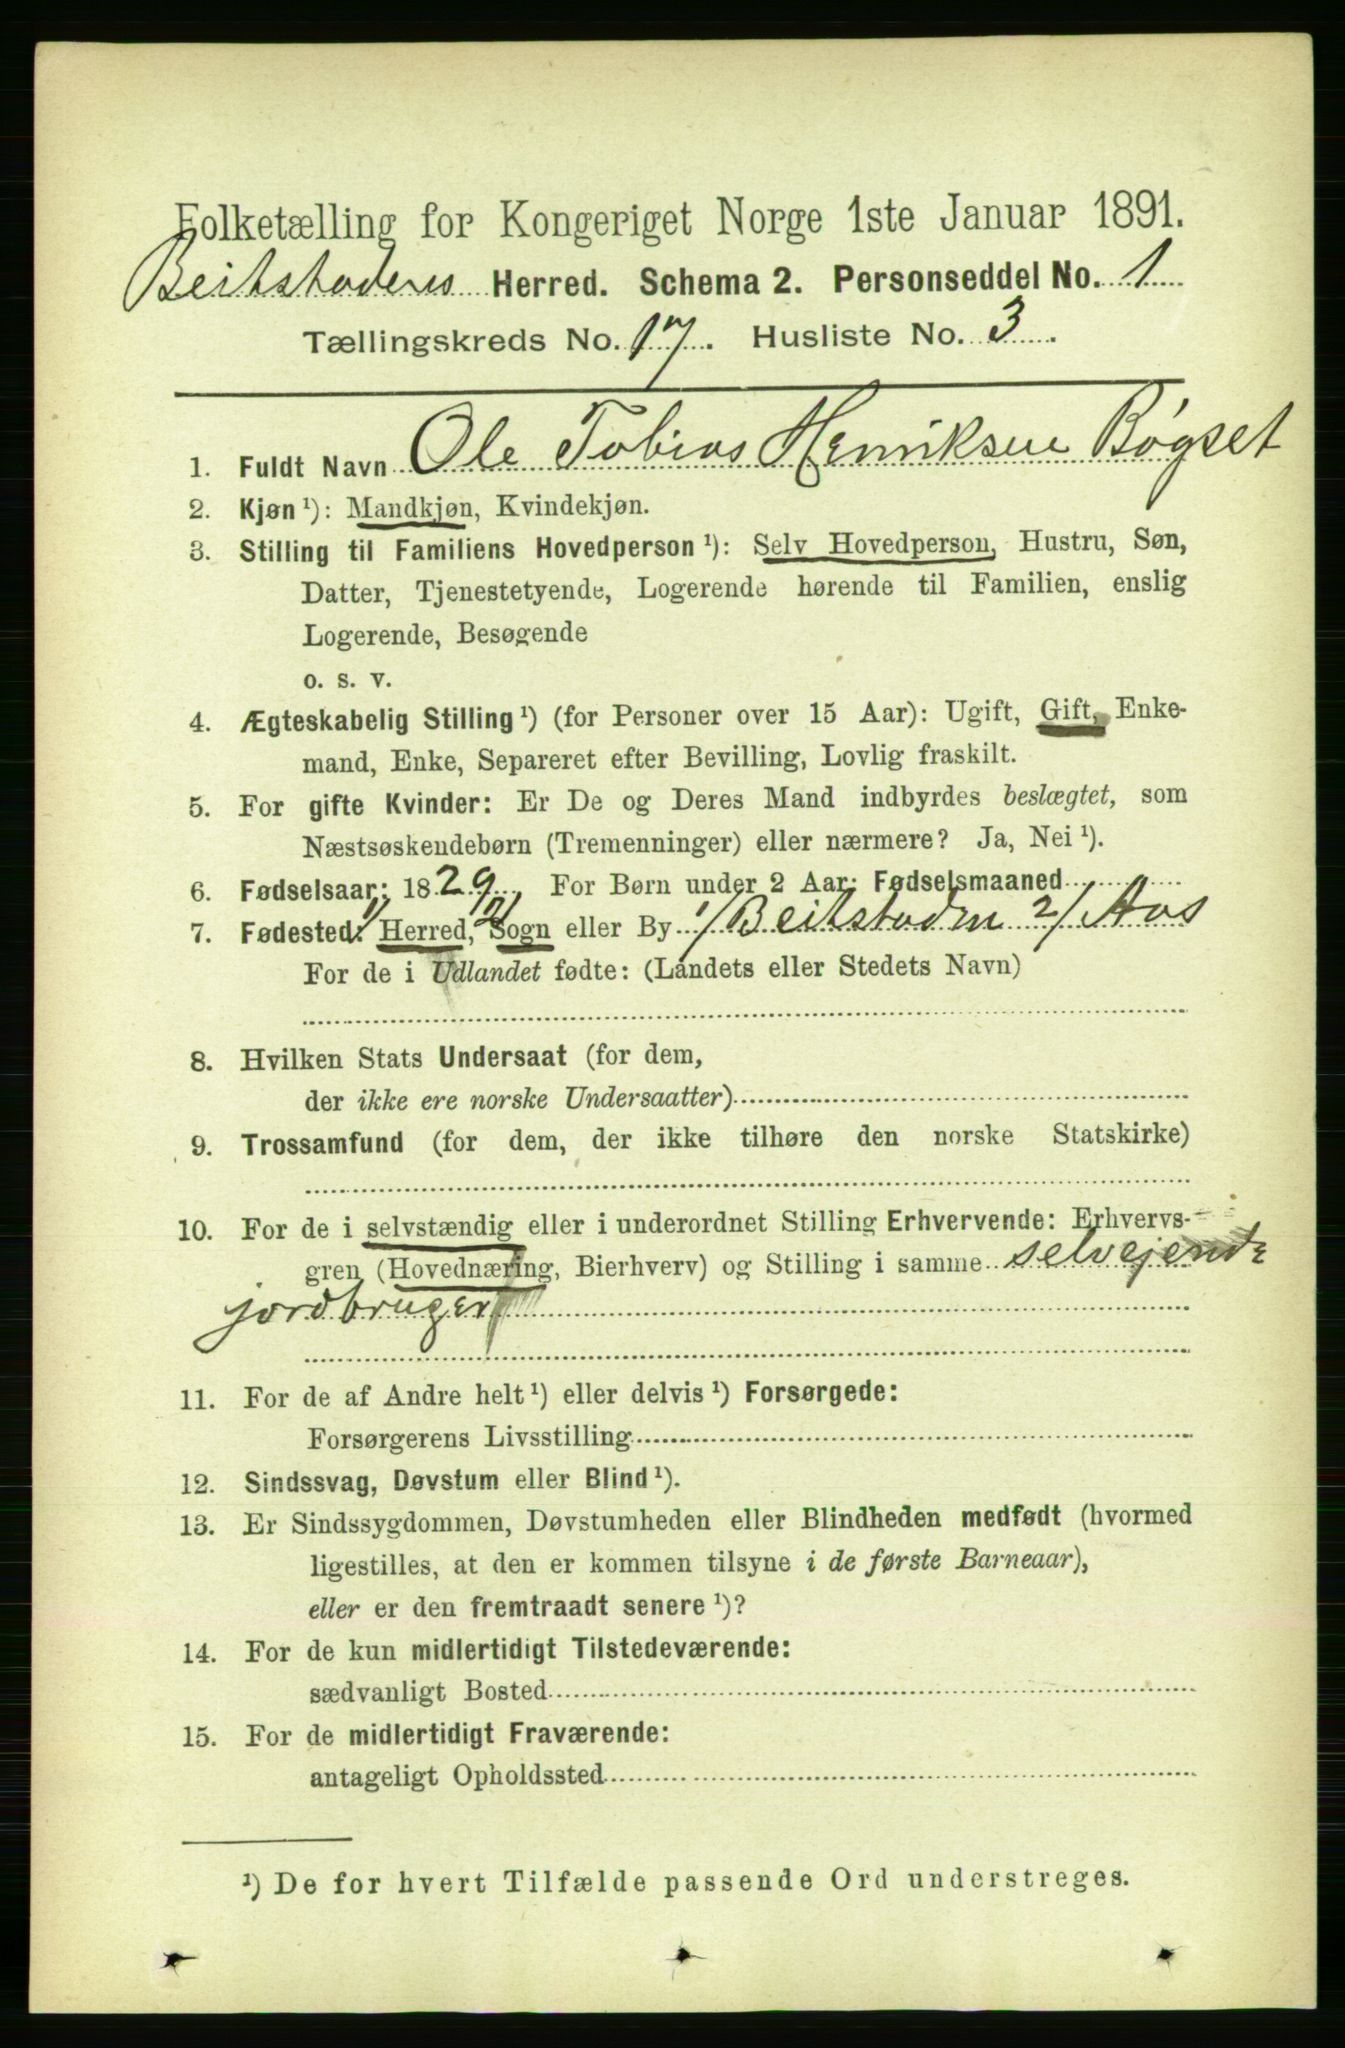 Folketælling for Kongeriget Norge 1ste Januar 1891.
Beitstadens Herred. Schema 2. Personseddel No. 1
Tællingskreds No. 17. Husliste No. 3.
1. Fuldt Navn Ole Tobias Henriksen Bøgset
2. Kjøn ¹): Mandkjøn, Kvindekjøn.
3. Stilling til Familiens Hovedperson ¹): Selv Hovedperson, Hustru, Søn,
Datter, Tjenestetyende, Logerende hørende til Familien, enslig
Logerende, Besøgende
o. s. v.
4. Ægteskabelig Stilling ¹) (for Personer over 15 Aar): Ugift, Gift, Enke-
mand, Enke, Separeret efter Bevilling, Lovlig fraskilt.
5. For gifte Kvinder: Er De og Deres Mand indbyrdes beslægtet, som
Næstsøskendebørn (Tremenninger) eller nærmere? Ja, Nei ¹).
6. Fødselsaar: 1829. For Børn under 2 Aar: Fødselsmaaned
7. Fødested: 1/ Herred, 2/ Sogn eller By 1/ Beitstaden 2/ Aas
For de i Udlandet fødte: (Landets eller Stedets Navn)
8. Hvilken Stats Undersaat (for dem,
der ikke ere norske Undersaatter)
9. Trossamfund (for dem, der ikke tilhøre den norske Statskirke)
10. For de i selvstændig eller i underordnet Stilling Erhvervende: Erhvervs-
gren (Hovednæring, Bierhverv) og Stilling i samme selvejende
jordbruger
11. For de af Andre helt ¹) eller delvis ¹) Forsørgede:
Forsørgerens Livsstilling
12. Sindssvag, Døvstum eller Blind ¹).
13. Er Sindssygdommen, Døvstumheden eller Blindheden medfødt (hvormed
ligestilles, at den er kommen tilsyne i de første Barneaar),
eller er den fremtraadt senere ¹)?
14. For de kun midlertidigt Tilstedeværende:
sædvanligt Bosted
15. For de midlertidigt Fraværende:
antageligt Opholdssted
¹) De for hvert Tilfælde passende Ord understreges.